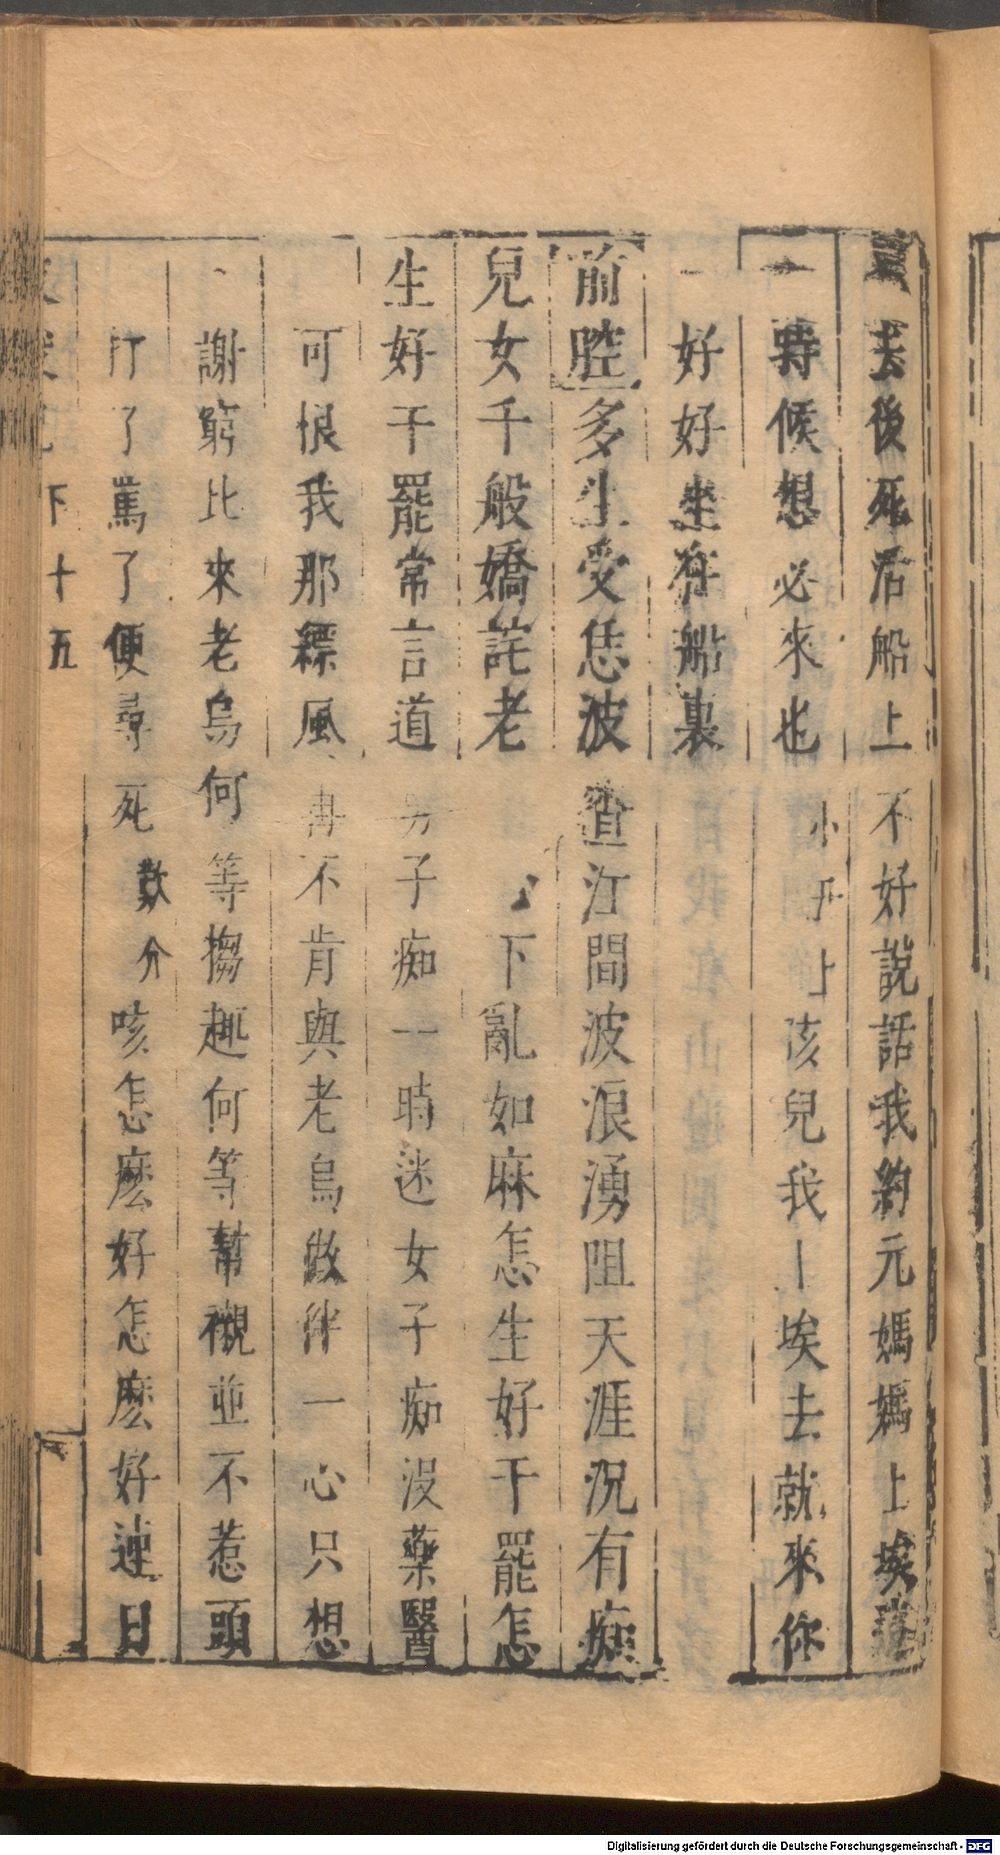 去後死活船上不好說話我約元媽媽上埃
一時候想必來也小丑上孩兒我上埃去就來你
好好坐在船裏
前腔多生受恁波查江間波浪湧阻天涯況有痴
兒女千般嬌詫老下亂如麻怎生好干罷怎
生好干罷常言道男子痴一時迷女子痴沒藥醫
可恨我那縹風再不肯與老烏做伴一心只想
謝窮比來老烏何等搊趣何等幫襯並不惹頭
打了罵了便尋死歎介咳怎麼好怎麼好連日
下十五
Digitalisierung gefördert durch die Deutsche Forschungsgemeinschaft - DFG